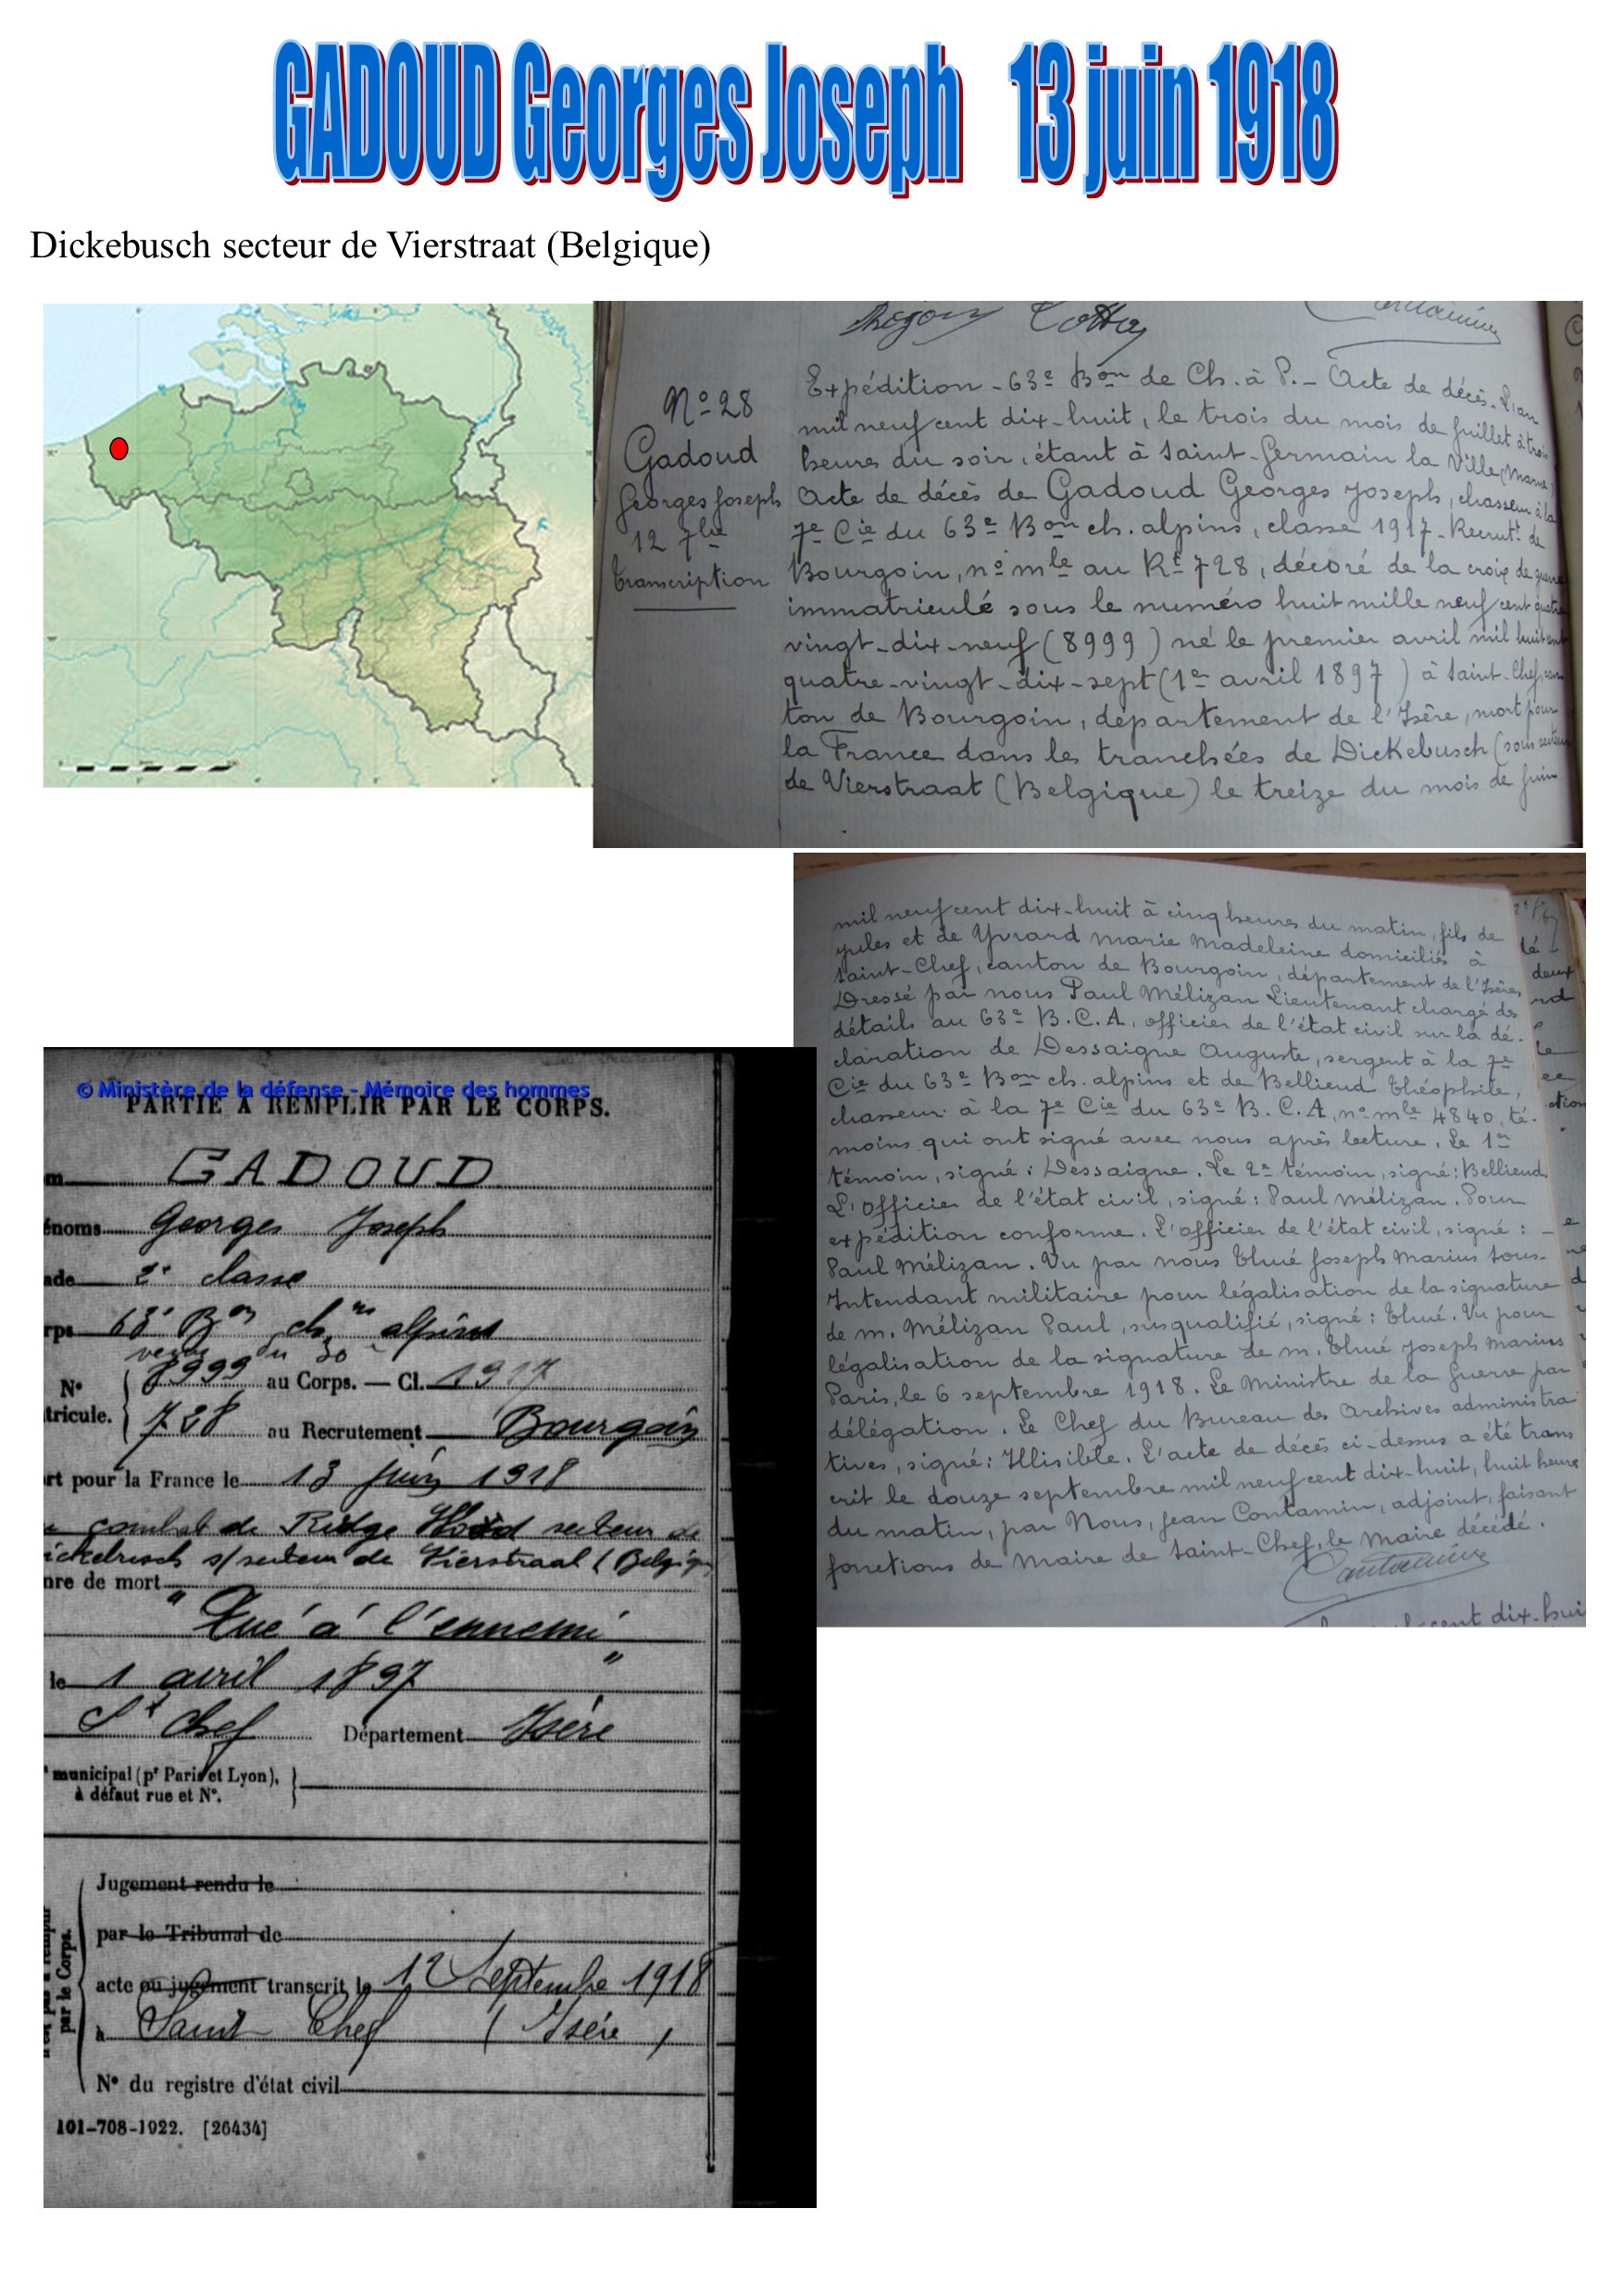 GADOUD Georges Joseph 13 juin 1918
Dickebusch secteur de Vierstraat (Belgique)
N° 28
Gadoud
Georges Joseph
12 7bre
transcription
Expédition - 63e Bon de Ch. à P. - Acte de décès. L'an
mil neuf cent dix-huit, le trois du mois de Juillet à trois
heures du soir, étant à Saint-Germain la Ville (Marne)
Acte de décès de Gadoud Georges Joseph, chasseur à la
7e Cie du 63e Bon ch. alpins, classe 1917 - Recrutt de
Bourgoin, n° mle au Rt 728, décoré de la croix de guerre
immatriculé sous le numéro huit mille neuf cent quatre
vingt-dix-neuf (8999) né le premier avril mil huit cent
quatre-vingt-dix-sept (1er avril 1897) à Saint-Chef, can
ton de Bourgoin, département de l'Isère, mort pour
la France dans les tranchées de Dickebusch (sous secteur
de Vierstraat (Belgique) le treize du mois de juin
mil neuf cent dix-huit à cinq heures du matin, fils de
Jules et de Yvrard Marie Madeleine domiciliés à
Saint-Chef, canton de Bourgoin, département de l'Isère,
Dressé par nous Paul Mélizan Lieutenant chargé des
détails au 63e B.C.A, officier de l'état civil sur la dé-
claration de Dessaigne Auguste, sergent à la 7e
Cie du 63e Bon ch. alpins et de Bellieud Théophile,
chasseur à la 7e Cie du 63e B.C.A, n° mle 4840, té-
moins qui ont signé avec nous après lecture. Le 1er
témoin, signé : Dessaigne. Le 2e témoin, signé : Bellieud.
L'officier de l'état civil, signé : Paul Mélizan. Pour
expédition conforme. L'officier de l'état civil, signé : -
Paul Mélizan. Vu par nous Thué Joseph Marius Sous-
Intendant militaire pour légalisation de la signature
de M. Mélizan Paul, susqualifié, signé : Thué. Vu pour
légalisation de la signature de M. Thué Joseph Marius
Paris, le 6 septembre 1918. Le Ministre de la Guerre par
délégation. Le Chef du Bureau des Archives administra
tives, signé : Illisible. L'acte de décès ci-dessus a été trans
crit le douze septembre mil neuf cent dix-huit, huit heures
du matin, par Nous, Jean Contamin, adjoint, faisant
fonctions de Maire de Saint-Chef, le Maire décédé.
Contamin
© Ministère de la défense - Mémoire des hommes
PARTIE A REMPLIR PAR LE CORPS.
m GADOUD
énoms Georges Joseph
ade 2e classe
rps 63e Bon chrs alpins
venu du 30e
N° 8999 au Corps. — Cl. 1917
tricule. 728 au Recrutement Bourgoin
rt pour la France le 13 Juin 1918
combat de Ridge Wood secteur de
ickebusch s/secteur de Vierstraat (Belgiq
nre de mort
"Tué à l'ennemi"
le 1 avril 1897
St Chef Département Isère
municipal (pr Paris et Lyon),
à défaut rue et N°.
par le Corps.
Jugement rendu le
par le Tribunal de
acte ou jugement transcrit le 12 Septembre 1918
à Saint Chef (Isère)
N° du registre d'état civil
101-708-1922. [26434]